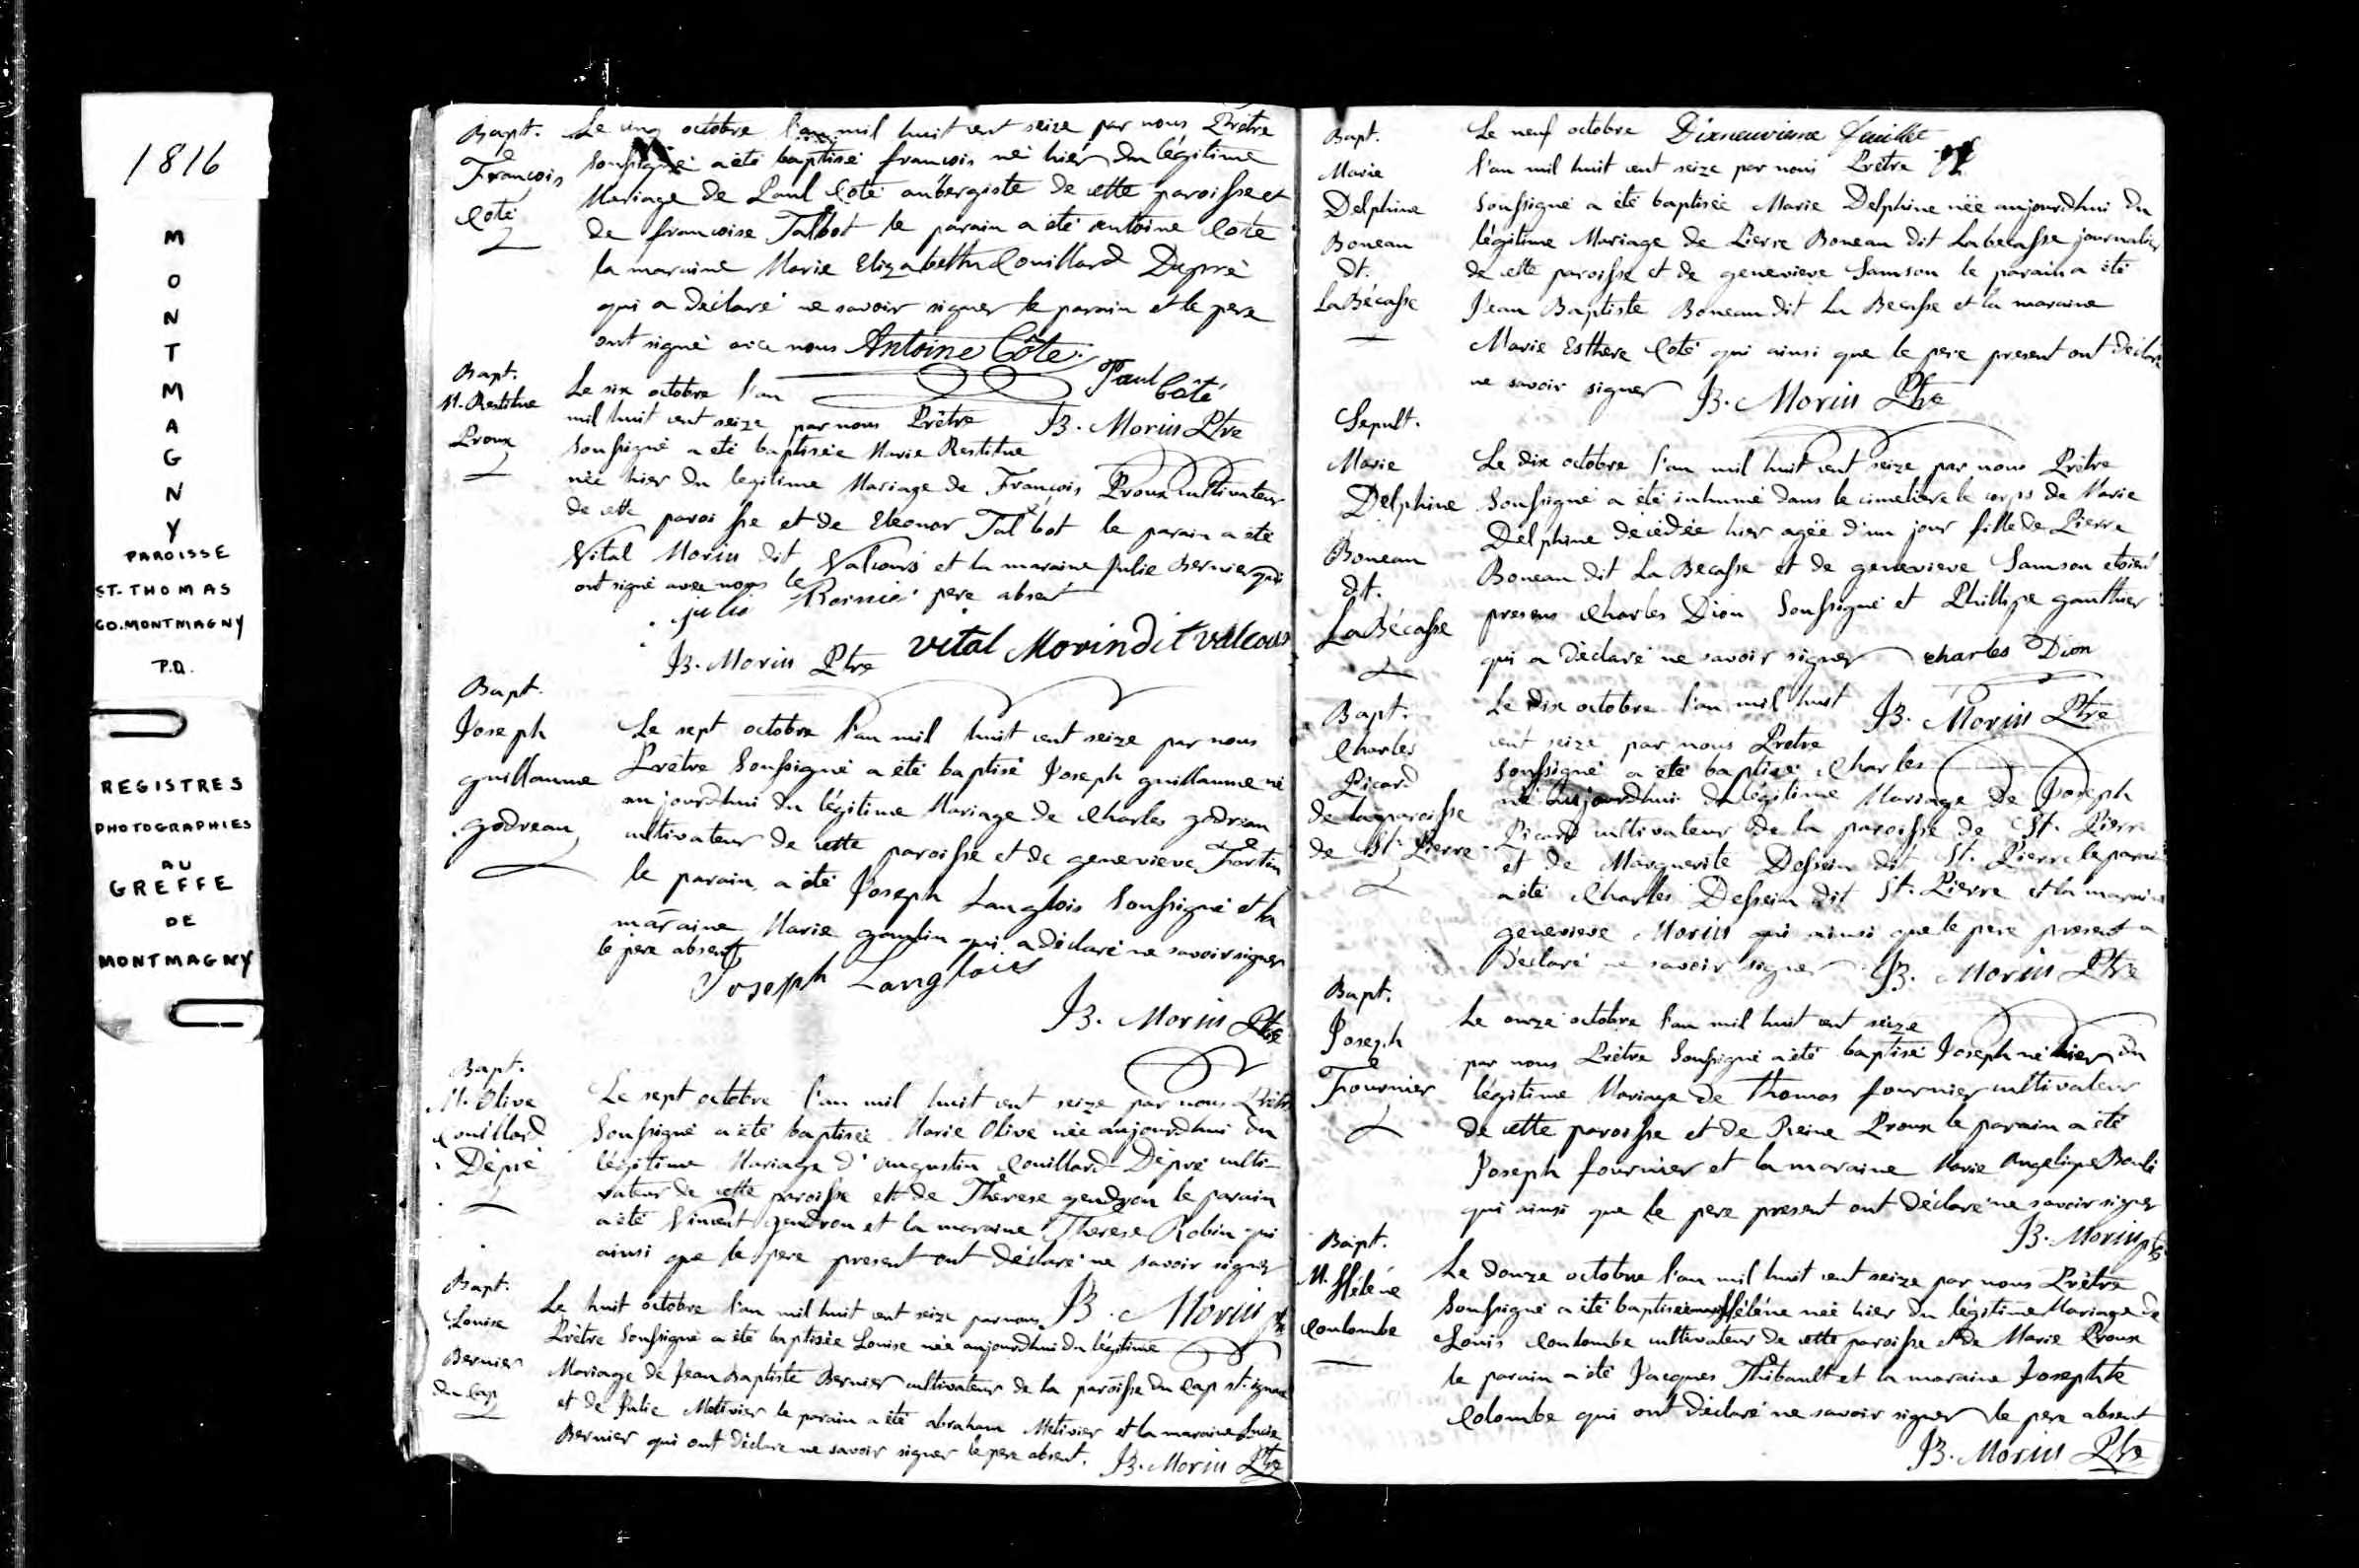 1816
MONTMAGNY
PAROISSE
ST-THOMAS
CO. MONTMAGNY
P.Q.
REGISTRES
PHOTOGRAPHIES
AU
GREFFE
DE
MONTMAGNY
Bapt.
François
Coté
Le cinq octobre l'an mil huit cent seize par nous Prêtre
Soussigné a été baptisé françois né hier du légitime
Mariage de Paul Coté aubergiste de cette paroisse et
de francoise Talbot le parain a été antoine Coté
la maraine Marie Elizabeth Couillard Dupré
qui a déclaré ne savoir signer le parain et le pere
ont signé avec nous Antoine Côte
Paul Côté
B. Morin Ptre
Bapt.
M. Restitue
Proux
Le six octobre l'an
mil huit cent seize par nous Prêtre
Soussigné a été baptisée Marie Restitue
née hier du legitime Mariage de François Proux cultivateur
de cette paroisse et de Eleonor Talbot le parain a été
Vital Morin dit Valcours et la maraine Julie Bernier qui
ont signé avec nous le pere absent
julie Bernier
vital Morin dit valcour
B. Morin Ptre
Bapt.
Joseph
guillaume
godreau
Le sept octobre l'an mil huit cent seize par nous
Prêtre Soussigné a été baptisé Joseph guillaume né
aujourdhui du légitime Mariage de Charles godreau
cultivateur de cette paroisse et de genevieve Fortin
le parain a été Joseph Langlois Soussigné et la
maraine Marie gaudin qui a déclaré ne savoir signer
le pere absent
Joseph Langlois
B. Morin Ptre
Bapt.
M. Olive
Couillard
Dépré
Le sept octobre l'an mil huit cent seize par nous Prêtre
Soussigné a été baptisée Marie Olive née aujourdhui du
légitime Mariage d'augustin Couillard Dépré culti-
vateur de cette paroisse et de Thérese gendron le parain
a été Vincent gendron et la maraine Therese Robin qui
ainsi que le pere present ont déclaré ne savoir signer
B. Morin Ptre
Bapt.
Louise
Bernier
du Cap
Le huit octobre l'an mil huit cent seize par nous
Prêtre Soussigné a été baptisée Louise née aujourdhui du légitime
Mariage de Jean Baptiste Bernier cultivateur de la paroisse du Cap st. ignace
et de Julie Metivier le parain a été abraham Metivier et la maraine Lucie
Bernier qui ont déclaré ne savoir signer le pere absent.
B. Morin Ptre
Dixneuvieme feuillet
Bapt.
Marie
Delphine
Boneau
dt.
La Bécasse
Le neuf octobre
l'an mil huit cent seize par nous Prêtre
Soussigné a été baptisée Marie Delphine née aujourdhui du
légitime Mariage de Pierre Boneau dit Labecasse journalier
de cette paroisse et de genevieve Samson le parain a été
Jean Baptiste Boneau dit La Becasse et la maraine
Marie Esthere Coté qui ainsi que le pere present ont déclaré
ne savoir signer B. Morin Ptre
Sepult.
Marie
Delphine
Boneau
dt.
La Bécasse
Le dix octobre l'an mil huit cent seize par nous Prêtre
Soussigné a été inhumé dans le cimetiere le corps de Marie
Delphine décédée hier agée d'un jour fille de Pierre
Boneau dit La Becasse et de genevieve Samson etoient
presens Charles Dion Soussigné et Phillipe gauthier
qui a déclaré ne savoir signer charles Dion
B. Morin Ptre
Bapt.
Charles
Picard
de la paroisse
de St. Pierre
Le dix octobre l'an mil huit
cent seize par nous Prêtre
Soussigné a été baptisé Charles
né aujourdhui du légitime Mariage de Joseph
Picard cultivateur de la paroisse de St. Pierre
et de Marguerite Dessein dit St. Pierre le parain
a été Charles Dessein dit St. Pierre et la maraine
genevieve Morin qui ainsi que le pere present a
déclaré ne savoir signer B. Morin Ptre
Bapt.
Joseph
Fournier
Le onze octobre l'an mil huit cent seize
par nous Prêtre Soussigné a été baptisé Joseph né hier du
légitime Mariage de Thomas fournier cultivateur
de cette paroisse et de Reine Proux le parain a été
Joseph fournier et la maraine Marie Angelique Boulé
qui ainsi que le pere present ont déclaré ne savoir signer
B. Morin ptre
Bapt.
M. Hélène
Coulombe
Le douze octobre l'an mil huit cent seize par nous Prêtre
Soussigné a été baptisée Hélène née hier du légitime Mariage de
Louis Coulombe cultivateur de cette paroisse et de Marie Proux
le parain a été Jacques Thibault et la maraine Josephte
Colombe qui ont déclaré ne savoir signer le pere absent
B. Morin Ptre